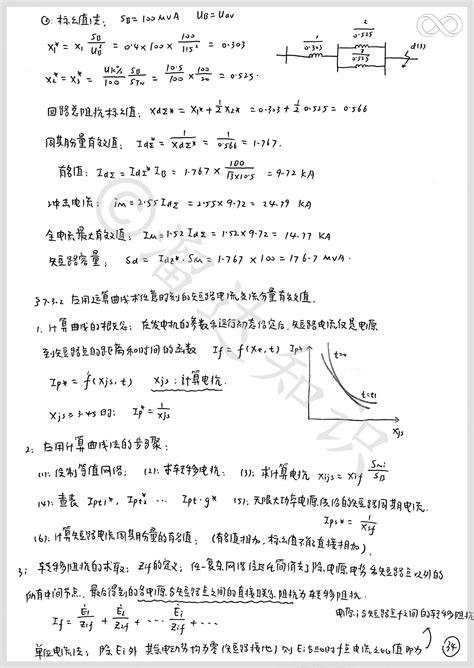 ②: 标么值法: SB=100MVA UB=Uav
X1*=X1 SB/UB² = 0.4×100×100/115² = 0.303
X2*=X3*= Uk%/100 SB/STN = 10.5/100×100/20 = 0.525.
1/0.303 2/0.525 3/0.525 d(3)
回路总阻抗标么值: XdΣ* = X1*+½X2* =0.303+½0.525 =0.566
周期分量有效值: IdΣ* = 1/XdΣ* = 1/0.566 = 1.767.
有名值: IdΣ = IdΣ* IB = 1.767× 100/√3×10.5 = 9.72 KA
冲击电流: im=2.55IdΣ = 2.55×9.72 = 24.79 KA
全电流最大有效值: Im=1.52IdΣ = 1.52×9.72 = 14.77 KA
短路容量: Sd = IdΣ*·SB = 1.767×100 = 176.7 MVA.
§7.3.2 应用运算曲线求任意时刻的短路电流交流分量有效值.
1. 计算曲线的概念: 在发电机的参数和运行初态给定后, 短路电流仅是电源
到短路点的距离和时间的函数 If = f(Xe, t)
Ip*=f(Xjs,t) Xjs: 计算电抗.
Xjs≥3.45时: Ip*=1/Xjs
Ip* t=0 t=t1 Xjs
2: 应用计算曲线法的步骤:
(1): 绘制等值网络: (2): 求转移电抗: (3): 求计算电抗 Xijs=Xif SNi/SB
(4): 查表 Ipt1*, Ipt2* ... Ipt·g* (5): 无限大功率电源供给的短路周期电流.
Ips* = 1/Xsf
(6): 计算短路电流周期分量的有名值: (有名值相加, 标么值不能直接相加).
3: 转移阻抗的求取: Zif的定义: 任一复杂网络经过化简消去了除电源电势和短路点以外的
所有中间节点, 最后得到的各电源与短路点之间的直接联系阻抗为转移阻抗.
If = E1/Z1f + E2/Z2f + ··· + Ei/Zif + ··· 电源i与短路点f之间的转移阻抗
单位电流法: 除Ei外 其余电动势均为零(短路接地) 则Ei与此时f点电流之比值即为
34
©溜达知识